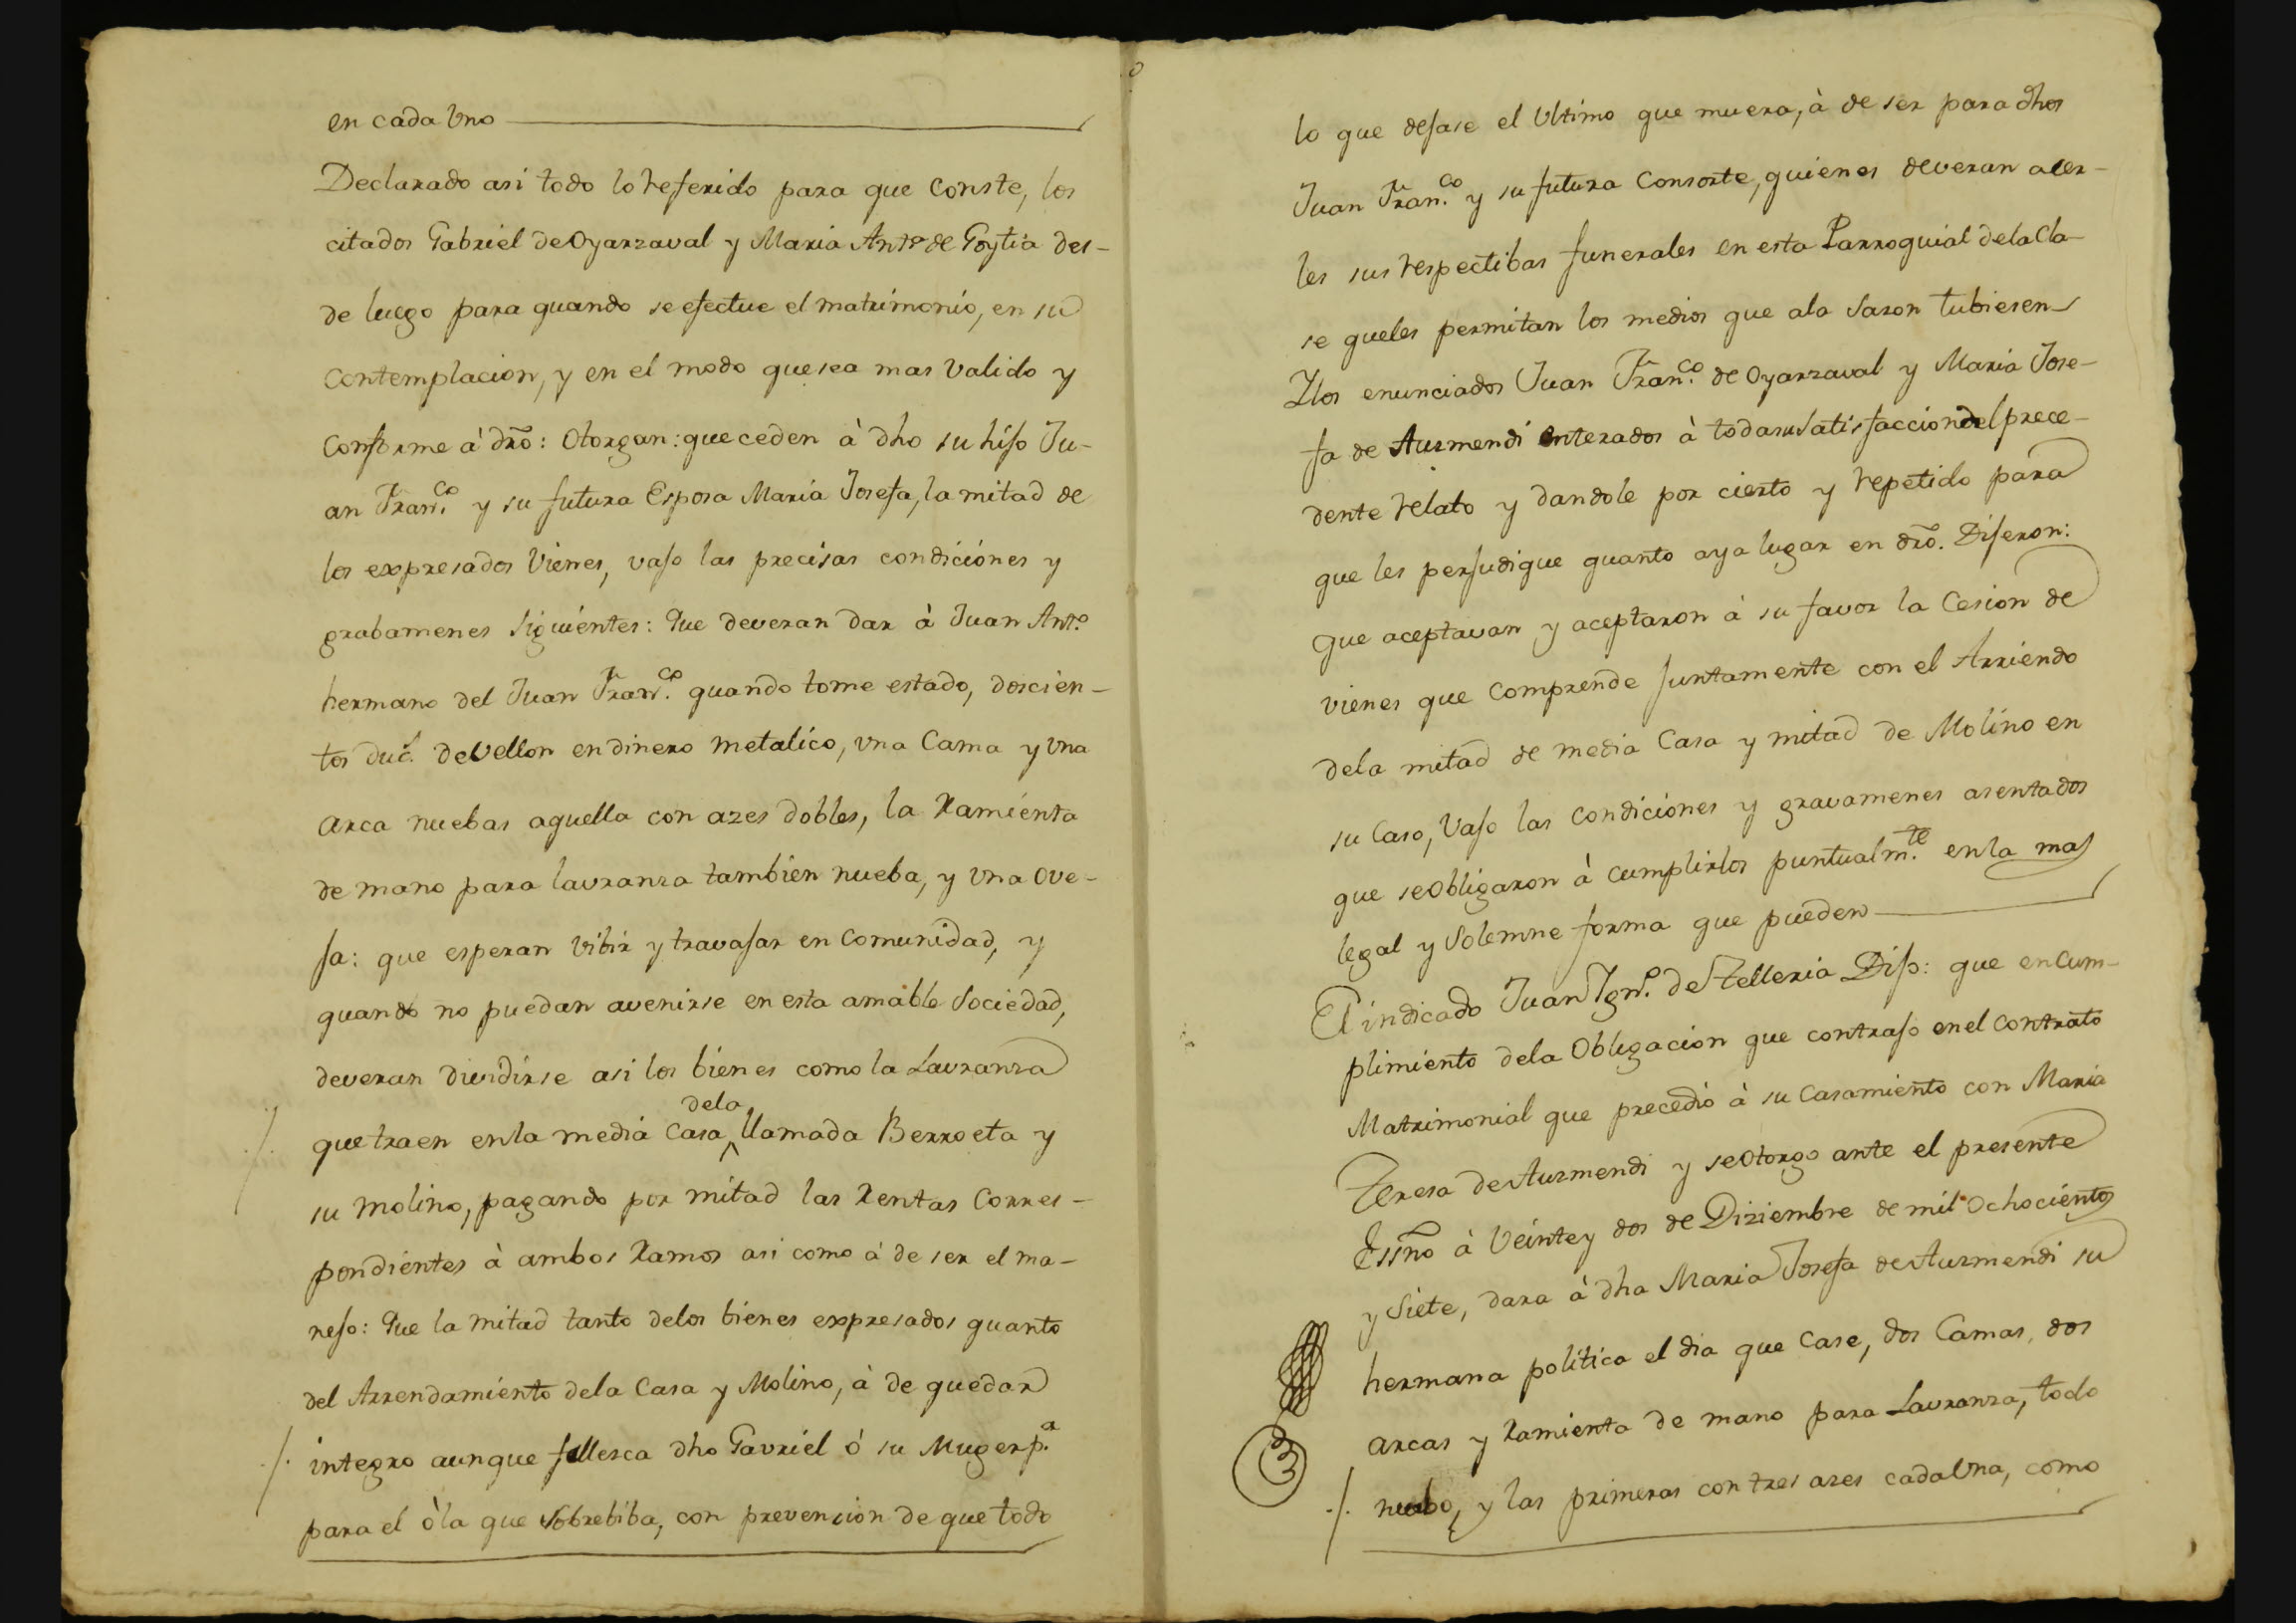 en cada Uno
Declarado asi todo lo referido para que Conste, los
citados Gabriel de Oyarzaval y Maria Antª de Goytia des-
de luego para quando se efectue el matrimonio, en su
Contemplacion, y en el modo que sea mas Valido y
Conforme à dr̃o: Otorgan: que ceden à dho su hijo Ju-
an Franco. y su futura Esposa Maria Josefa, la mitad de
los expresados Vienes, vajo las precisas condiciones y
grabamenes Siguientes: Que deveran dar à Juan Antº
hermano del Juan Franco. quando tome estado, doscien-
tos ducs. de Vellon en dinero metalico, una Cama y una
Arca nuebas aquella con azes dobles, la Ramienta
de mano para lavranza tambien nueba, y una Ove-
ja: que esperan Vibir y travajar en Comunidad, y
quando no puedan avenirse en esta amable Sociedad,
deveran dividirse asi los bienes como la Lavranza
dela
que traen en la media Casa ^ llamada Berroeta y
su Molino, pagando por mitad las Rentas Corres-
pondientes à ambos Ramos asi como à de ser el ma-
nejo: Que la mitad tanto delos bienes expresados quanto
del Arrendamiento dela Casa y Molino, à de quedar
integro aunque fallesca dho Gavriel ò su Muger p.a
para el òla que Sobrebiba, con prevencion de que todo
lo que dejase el Ultimo que muera, à de ser para dhos
Juan Fran.co y su futura Consorte, quienes deveran acer-
les sus respectibas funerales en esta Parroquial dela Cla-
se queles permitan los medios que ala Sazon tubiesen
Ylos enunciados Juan Fran.co de Oyarzaval y Maria Jose-
fa de Auzmendi enterados à toda su Satisfaccion del prece-
dente relato y dandole por cierto y repetido para
que les perjudique quanto aya lugar en dr̃o. Dijeron:
Que aceptavan y aceptaron à su favor la Cesion de
vienes que Comprende juntamente con el Arriendo
dela mitad de media Casa y mitad de Molino en
su Caso, Vajo las Condiciones y gravamenes asentados
que se Obligaron à Cumplirlos puntualm.te en la mas
legal y Solemne forma que pueden
El indicado Juan Ign.o de Telleria Dijo: que en Cum-
plimiento dela Obligacion que contrajo en el Contrato
Matrimonial que precedió à su Casamiento con Maria
Teresa de Auzmendi y se Otorgo ante el presente
Essño à Veinte y dos de Diziembre de mil Ochocientos
y Siete, dara à dha Maria Josefa de Auzmendi su
hermana politica el dia que Case, dos Camas, dos
Arcas y Ramienta de mano para Lavranza, todo
nuebo, y las primeras con tres azes cada Una, como